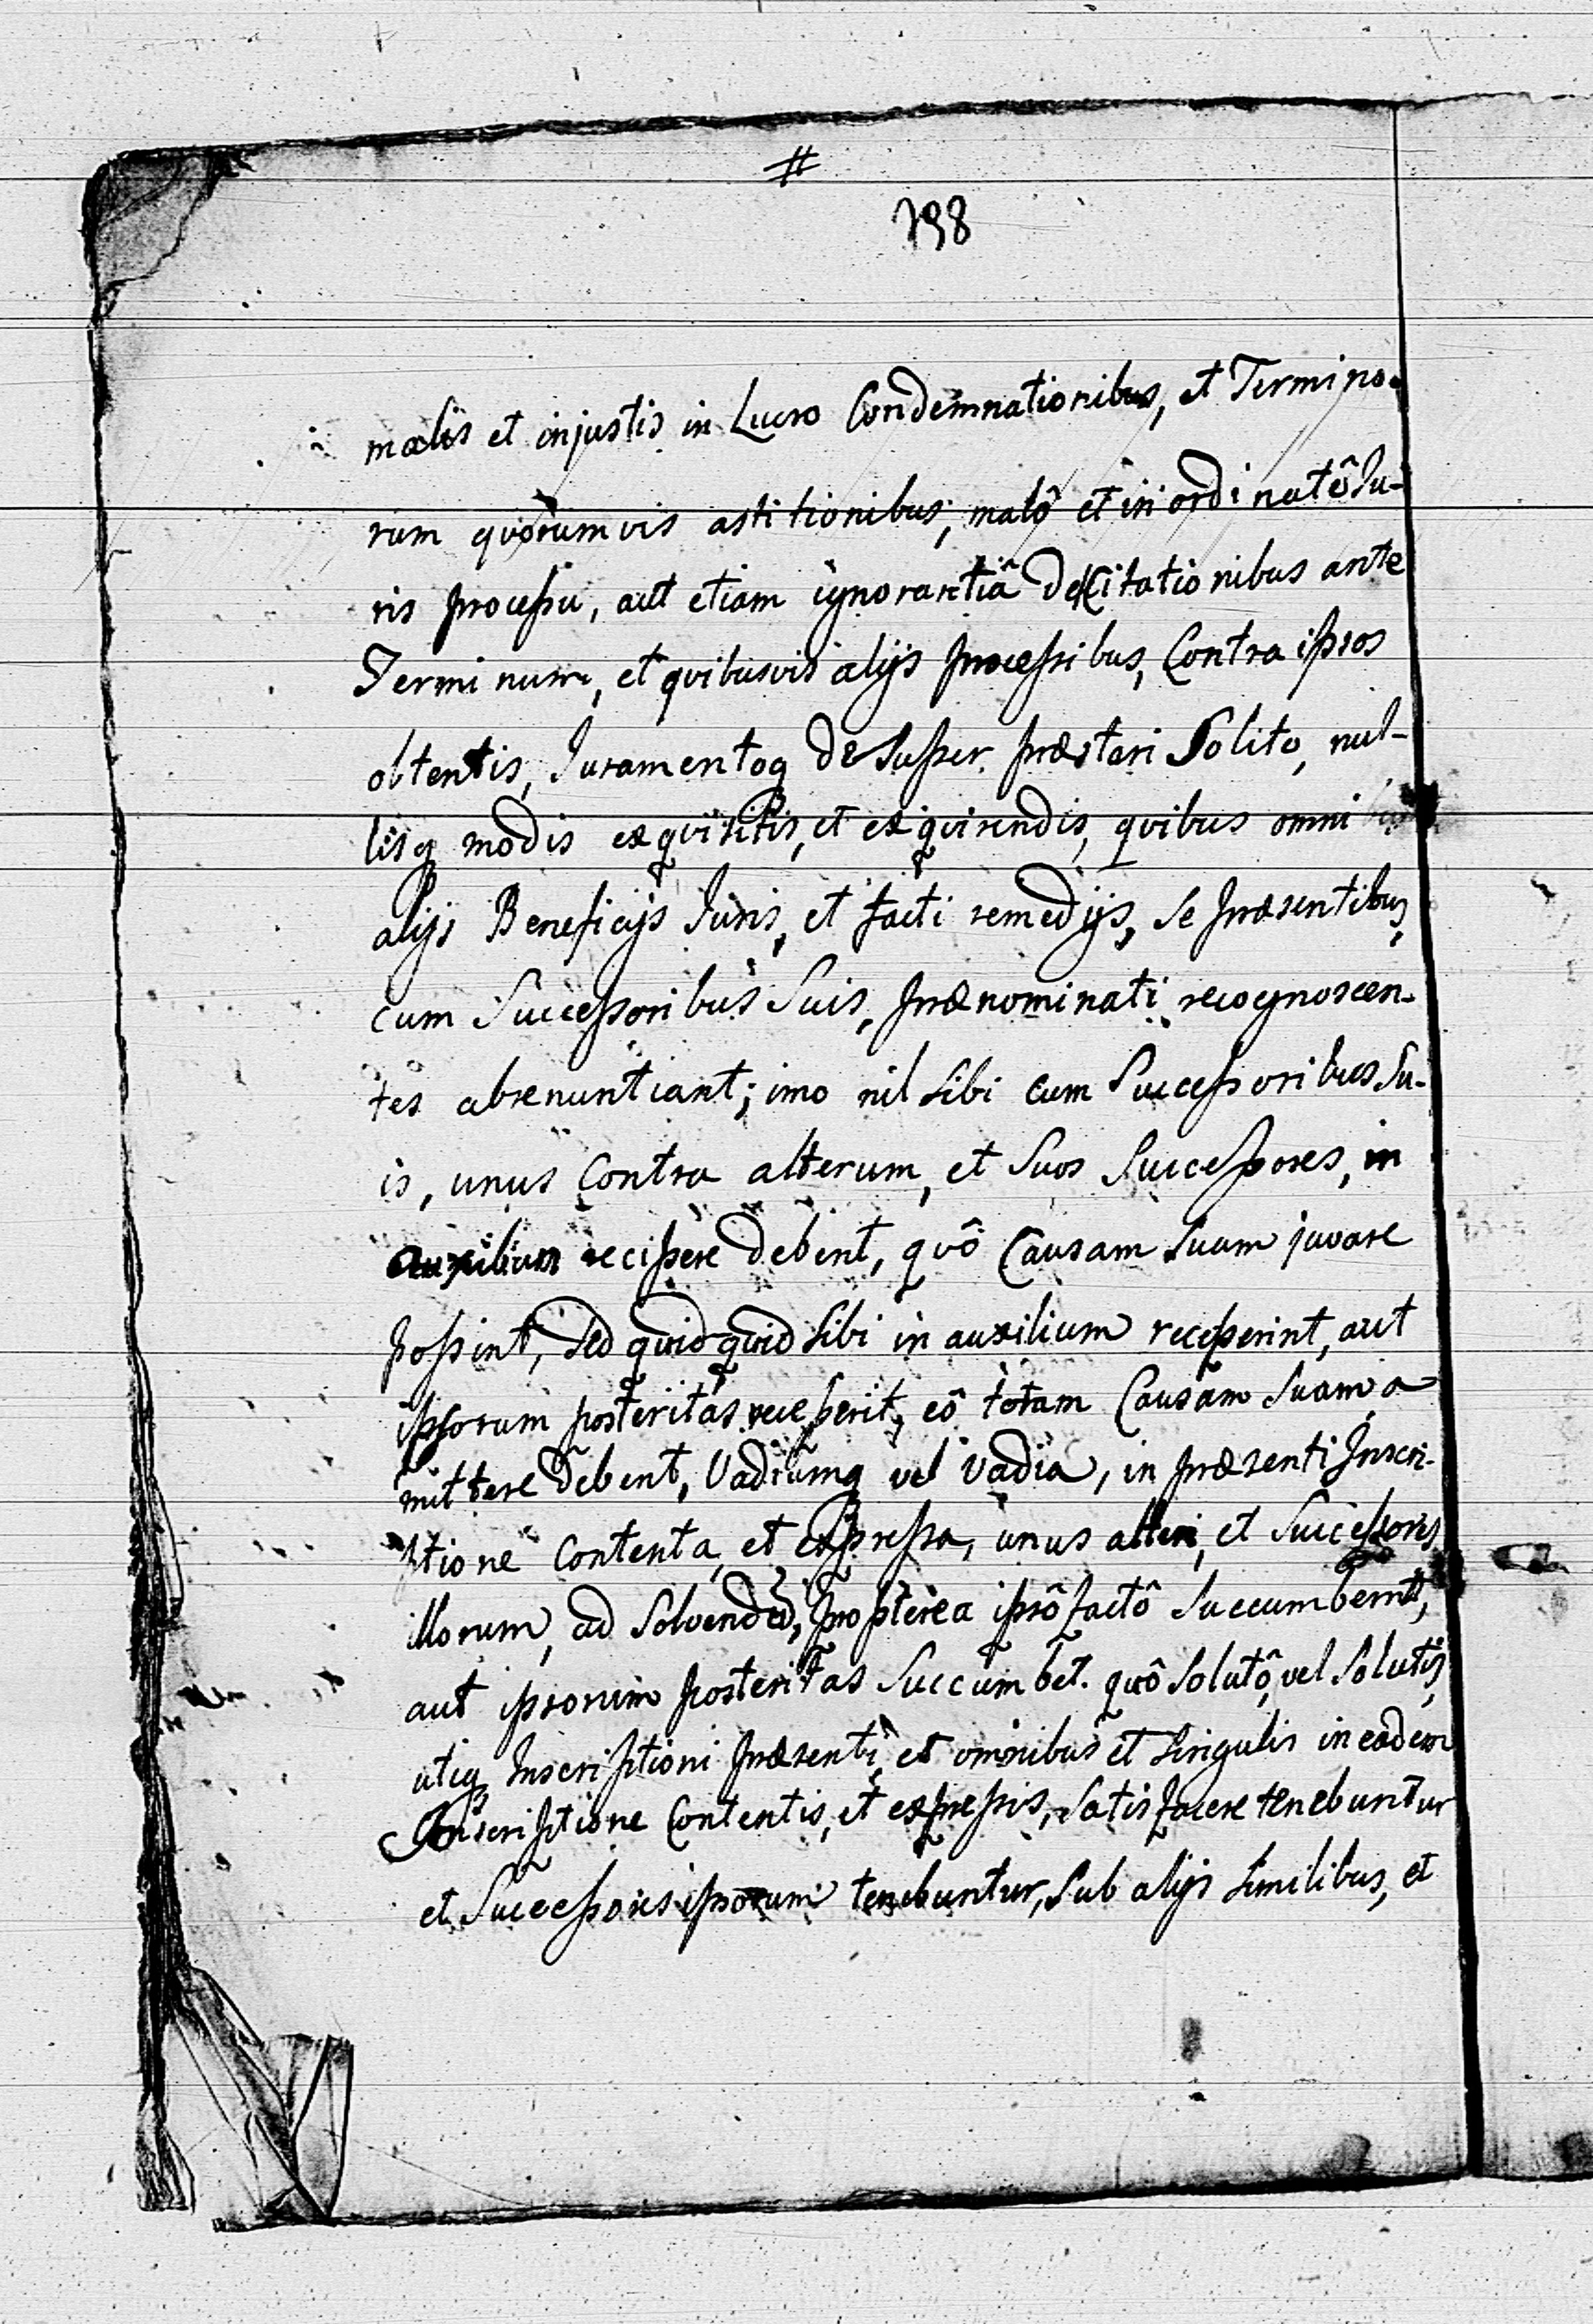 #
798
malis et injustis in Lucro Condemnationibus, et Termino-
rum quorumvis astitionibus, malô et inordinatô Iu-
ris processu, aut etiam ignorantiâ de Citationibus ante
Terminum, et quibusvis alijs processibus, Contra ipsos
obtentis, Juramentoq desuper præstari Solito, nul-
lisq modis exquisitis, et exquirendis, quibus omni
alijs Beneficijs Juris, et facti remedijs, se præsentibus,
cum Successoribus Suis, prænominati recognoscen-
tes abrenuntiant; imo nil sibi cum Successoribus Su-
is, unus Contra alterum, et Suos Successores, in
auxilium recipere debent, quô Causam Suam juvare
possint, sed quidquid sibi in auxilium receperint, aut
ipsorum posteritas receperit, eô totam Causam Suam a
mittere debent, Vadiumq vel Vadia, in præsenti Inscri-
ptione Contenta, et expressa, unus alteri, et Successores
illorum, ad Solvendũ, propterea ipsô factô Succumbent,
aut ipsorum posteritas Succumbet. quô Solutô, vel Solutis,
utiq Inscriptioni præsenti, et omnibus et singulis in eadem
Inscriptione Contentis, et expressis, Satisfacere tenebuntur
et Successores ipsorum tenebuntur, Sub alijs similibus, et